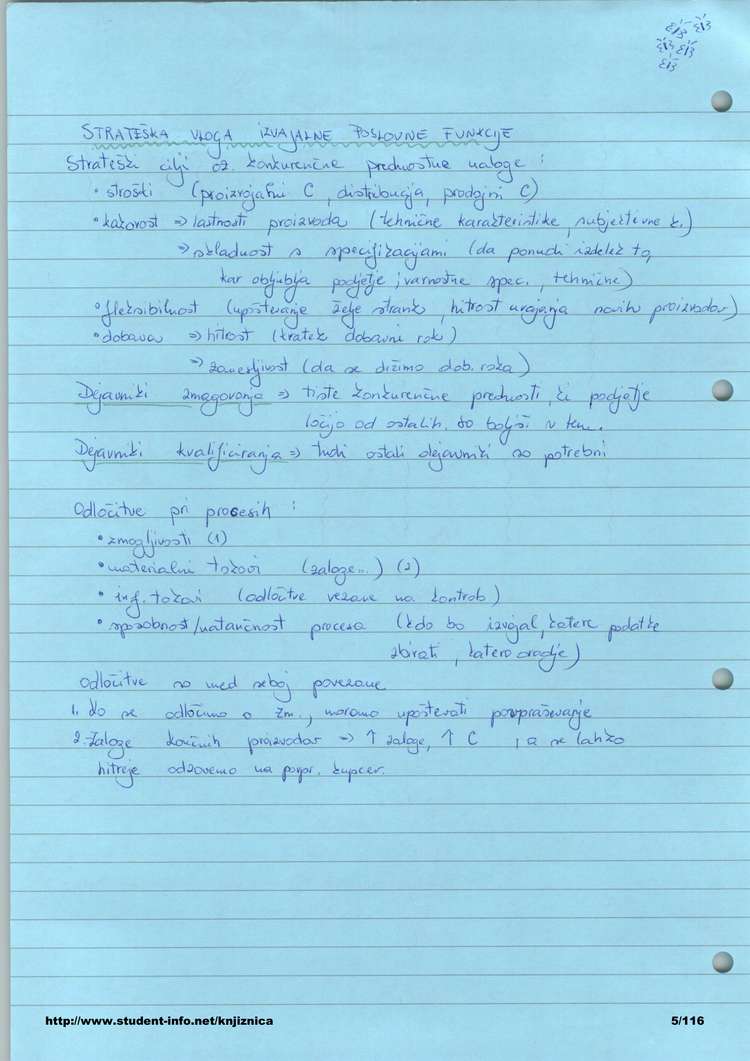 STRATEŠKA VLOGA IZVAJALNE POSLOVNE FUNKCIJE
Strateški cilji oz. konkurenčne prednostne naloge :
• stroški (proizvajalni C, distribucija, prodajni C)
• kakovost ⇒ lastnosti proizvoda (tehnične karakteristike, subjektivne k.)
⇒ skladnost s specifikacijami (da ponudi izdelek to,
kar obljublja podjetje; varnostne spec., tehnične)
• fleksibilnost (upoštevanje želje strank, hitrost uvajanja novih proizvodov)
• dobava ⇒ hitrost (kratek dobavni rok)
⇒ zanesljivost (da se držimo dob. roka)
Dejavniki zmagovanja ⇒ tiste konkurenčne prednosti, ki podjetje
ločijo od ostalih, so boljši v tem.
Dejavniki kvalificiranja ⇒ tudi ostali dejavniki so potrebni
Odločitve pri procesih :
• zmogljivosti (1)
• materialni tokovi (zaloge...) (2)
• inf. tokovi (odločitve vezane na kontrolo)
• sposobnost/natančnost procesa (kdo bo izvajal, katere podatke
zbirati, katero orodje)
Odločitve so med seboj povezane
1. ko se odločimo o zm., moramo upoštevati povpraševanje
2. Zaloge končnih proizvodov ⇒ ↑ zaloge, ↑ C , a se lahko
hitreje odzovemo na povpr. kupcev.
http://www.student-info.net/knjiznica 5/116